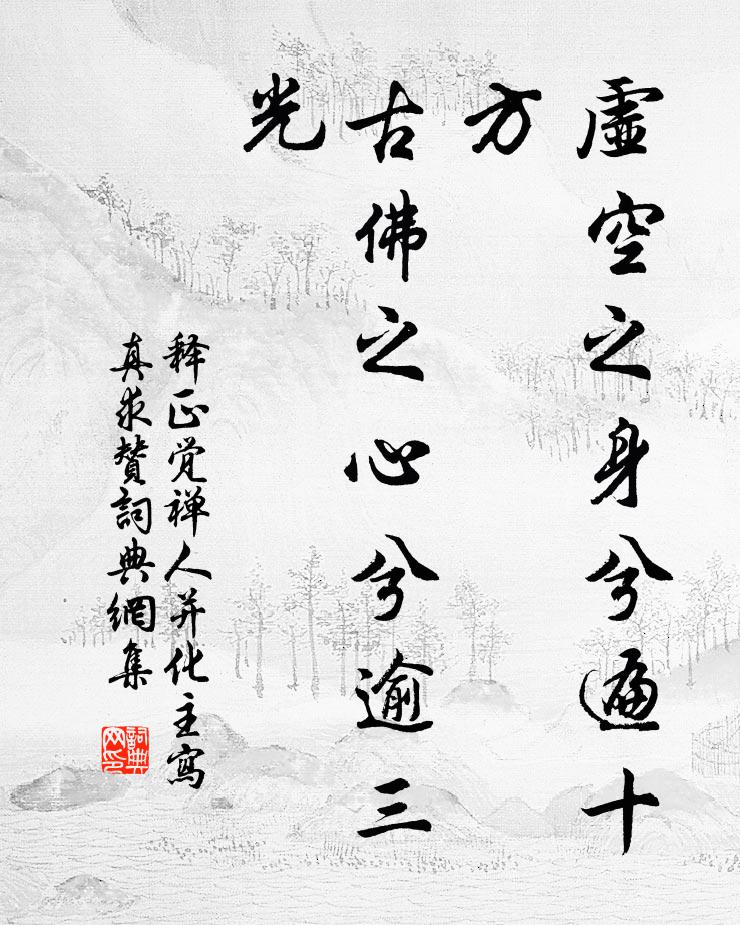 虛空之身兮遍十
方
古佛之心兮逾三
光
释正觉禅人并化主寫
真求贊詞典網集
詞典
网印